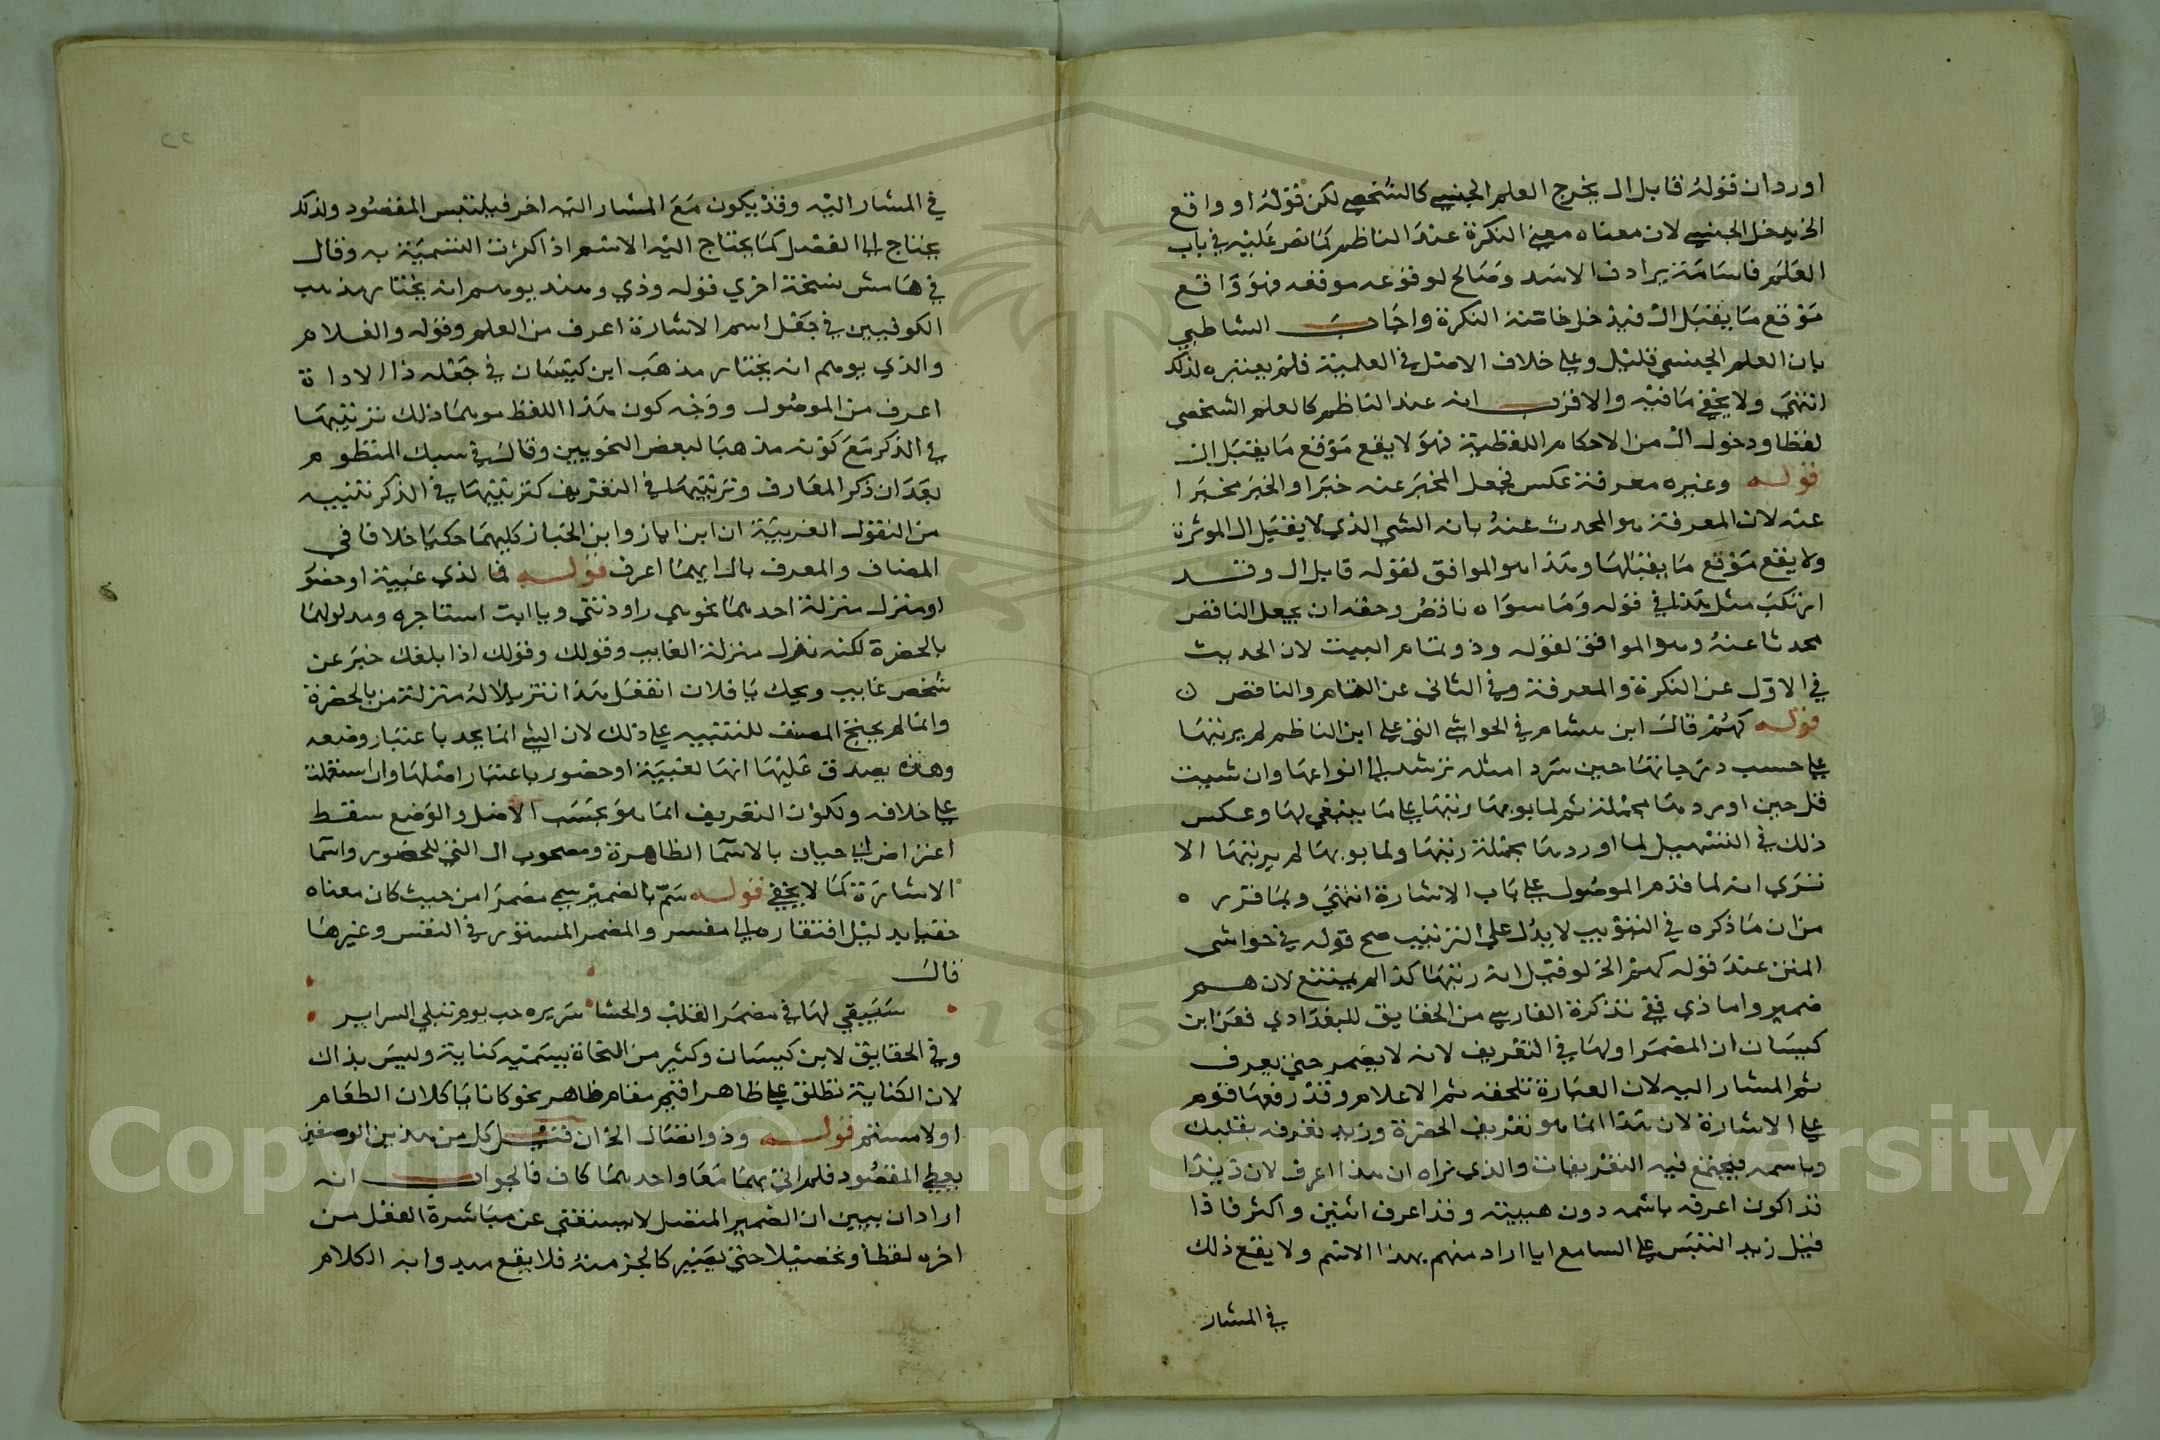 اورد ان قوله قابل ال يخرج العلم الجنسي كالشخصي لكن قوله او واقع
الخ يدخل الجنسي لان معناه معنى النكرة عند الناظم كما نص عليه في باب
العلم فاسامة يرادف الاسد وصالح لوقوعه موقعه فهو واقع
موقع ما يقبل ال فيدخل خاصة النكرة واجاب الشاطبي
بان العلم الجنسي قليل وعلى خلاف الاصل في العلمية فلم يعتبره لذلك
انتهى ولا يخفى ما فيه والاقرب انه عند الناظم كالعلم الشخصي
لفظا ودخول ال من الاحكام اللفظية فهو لا يقع موقع ما يقبل ال
قوله وغيره معرفة عكس فجعل المخبر عنه خبرا والخبر مخبرا
عنه لان المعرفة هو المحدث عنه بانه الشي الذي لا يقبل ال الموثرة
ولا يقع موقع ما يقبلها وهذا هو الموافق لقوله قابل ال وقد
ارتكب مثل هذا في قوله وما سواه ناقص وحقه ان يجعل الناقص
محدثا عنه وهو الموافق لقوله وذو تمام البيت لان الحديث
في الاول عن النكرة والمعرفة وفي الثاني عن التام والناقص
قوله كهم قال ابن هشام في الحواشي التي على ابن الناظم لم يرتبها
على حسب درجاتها حين سرد امثله ترشد الى انواعها وان شيت
قل حين اوردها مجملة ثم لما بوبها رتبها على ما ينبغي لها وعكس
ذلك في التسهيل لما اوردها مجملة رتبها ولما بوبها لم يرتبها الا
ترى انه لما قدم الموصول على باب الاشارة انتهى وبما قرره
من ان ما ذكره في التبويب لا يدل على الترتيب صح قوله في حواشي
المتن عند قوله كهم الخ لو قيل انه رتبها كذا لم يمتنع لان هم
ضمير واما ذي ففي تذكرة الفارسي من الحقايق للبغدادي فعن ابن
كيسان ان المضمر اولها في التعريف لانه لا يضمر حتى يعرف
ثم المشار اليه لان العبارة تلحقه ثم الاعلام وقد رفعها قوم
على الاشارة لان هذا انما هو تعريف الحضرة وزيد تعرفه بقلبك
وباسمه فيجتمع فيه التعريفات والذي نراه ان هذا اعرف لان زيدا
قد اكون اعرفه باسمه دون هييته وقد اعرف اثنين واكثر فاذا
قيل زيد التبس على السامع ايا اراد منهم بهذا الاسم ولا يقع ذلك
في المشار
في المشار اليه وقد يكون مع المشار اليه اخر فيلتبس المقصود ولذلك
يحتاج الى الفصل كما يحتاج اليه الاسم اذا كثرت التسمية به وقال
في هامش نسخة اخرى قوله وذي وهند يوهم انه يختار مذهب
الكوفيين في جعل اسم الاشارة اعرف من العلم وقوله والغلام
والذي يوهم انه يختار مذهب ابن كيسان في جعله ذا الاداة
اعرف من الموصول ووجه كون هذا اللفظ موهما ذلك ترتيبها
في الذكر مع كونه مذهبا لبعض النحويين وقال في سبك المنظوم
بعد ان ذكر المعارف وترتيبها في التعريف كترتيبها في الذكر تنبيه
من النقول الغريبة ان ابن اياز وابن الخباز كليهما حكيا خلافا في
المضاف والمعرف بال ايهما اعرف قوله فما لذي غيبة او حضو
او منزل منزلة احدهما نحو هي راودتني ويا ابت استاجره ومدلولهما
بالحضرة لكنه نزل منزلة الغايب وقولك وقولك اذا بلغك خبر عن
شخص غايب ويحك يا فلان اتفعل هذا تنزيلا له منزلة من بالحضرة
وانما لم يحتج المصنف للتنبيه على ذلك لان الشي انما يحد باعتبار وضعه
وهذه يصدق عليها انها لغيبة او حضور باعتبار اصلها وان استعملت
على خلافه ولكون التعريف انما هو بحسب الاصل والوضع سقط
اعتراض ابي حيان بالاسما الظاهرة ومصحوب ال التي للحضور واسما
الاشارة كما لا يخفى قوله سم بالضمير سمي مضمرا من حيث كان معناه
خفيا بدليل افتقاره الى مفسر والمضمر المستور في النفس وغيرها
قال
سيبقى لها في مضمر القلب والحشا سريره حب يوم تبلى السراير
وفي الحقايق لابن كيسان وكثير من النحاة يسميه كناية وليس بذاك
لان الكناية تطلق على ظاهر اقيم مقام ظاهر نحو كانا ياكلان الطعام
او لامستم قوله وذو اتصال الخ ان قيل كل من هذين الوصفين
يعطي المقصود فلم اتى بهما معا واحدهما كاف فالجواب انه
اراد ان يبين ان الضمير المتصل لا يستغني عن مباشرة العقل من
اخره لفظا وتحصيلا حتى يصير كالجز منه فلا يقع مبدوا به الكلام